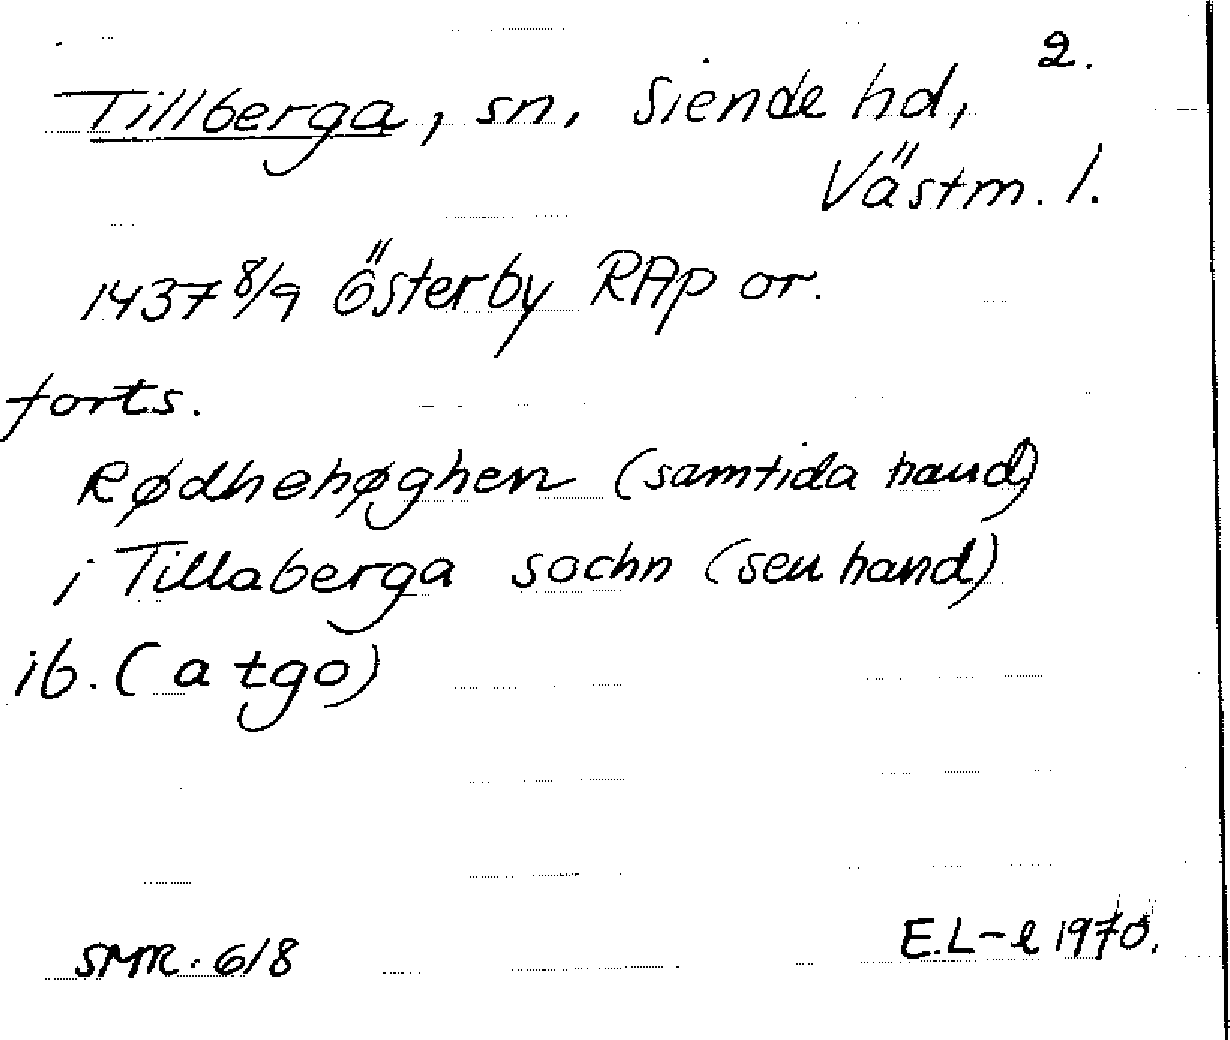 2.
Tillberga, sn, Siende hd,
Västm. l.
1437 8/9 Österby RAp or.
forts.
Rødhehøghen (samtida hand)
i Tillaberga sochn (sen hand)
ib. (a tgo)
SMR. 618
E.L-l 1970.